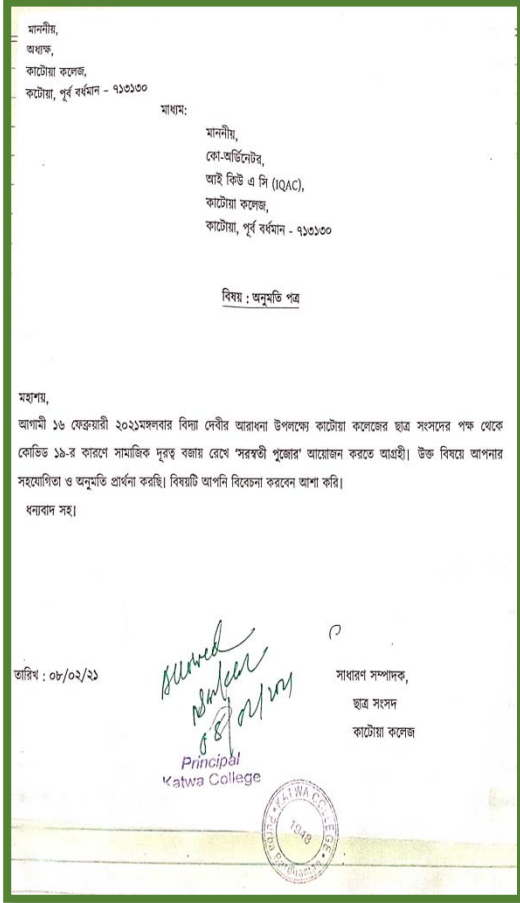 মাননীয়,
অধ্যক্ষ,
কাটোয়া কলেজ,
কটোয়া, পূর্ব বর্ধমান - ৭১৩১৩০
মাধ্যম:
মাননীয়,
কো-অর্ডিনেটর,
আই কিউ এ সি (IQAC),
কাটোয়া কলেজ,
কাটোয়া, পূর্ব বর্ধমান - ৭১৩১৩০
বিষয় : অনুমতি পত্র
মহাশয়,
আগামী ১৬ ফেব্রুয়ারী ২০২১মঙ্গলবার বিদ্যা দেবীর আরাধনা উপলক্ষ্যে কাটোয়া কলেজের ছাত্র সংসদের পক্ষ থেকে
কোভিড ১৯-র কারণে সামাজিক দূরত্ব বজায় রেখে 'সরস্বতী পুজোর' আয়োজন করতে আগ্রহী। উক্ত বিষয়ে আপনার
সহযোগিতা ও অনুমতি প্রার্থনা করছি। বিষয়টি আপনি বিবেচনা করবেন আশা করি।
ধন্যবাদ সহ।
Allowed
তারিখ : ০৮/০২/২১
সাধারণ সম্পাদক,
ছাত্র সংসদ
কাটোয়া কলেজ
Principal
Katwa College
KATWA COLLEGE
1948
Purba Bardhaman